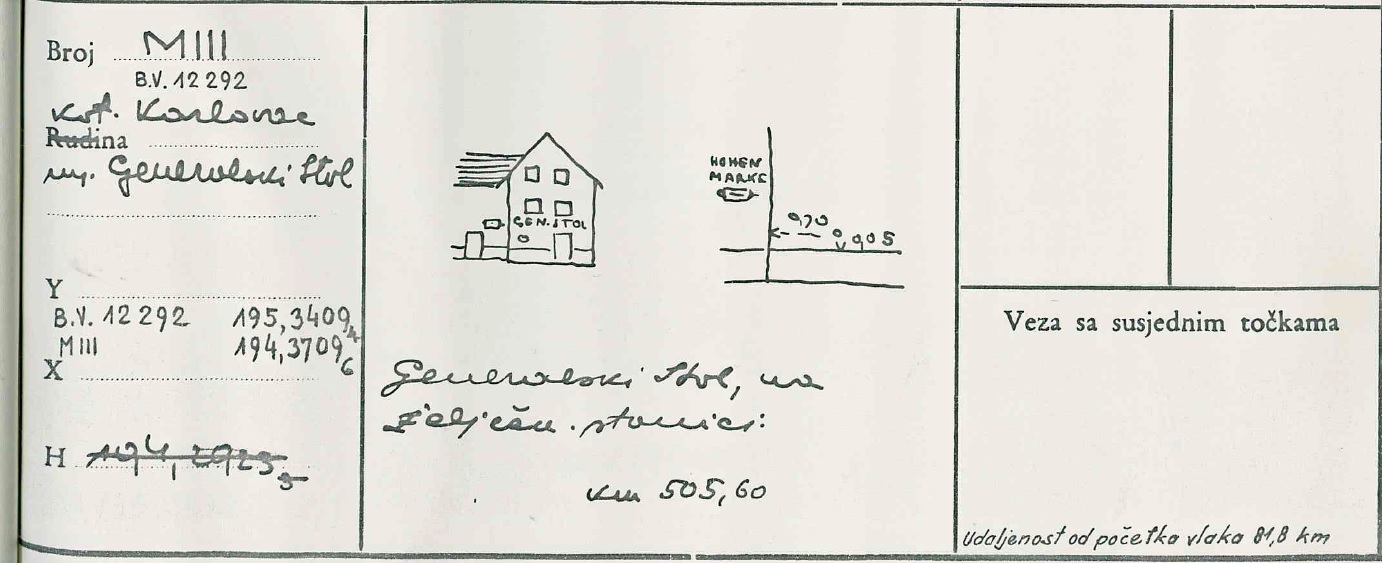 Broj MIII
B.V. 12 292
kot. Karlovac
Rudina
mj. Generalski Stol
Y
B.V. 12 292 195,3409₄
MIII 194,3709₆
X
H 194,2923₅
GEN. STOL
HÖHEN
MARKE
0,70
0,905
Generalski Stol, na
željezn. stanici:
km 505,60
Veza sa susjednim točkama
Udaljenost od početka vlaka 81,8 km